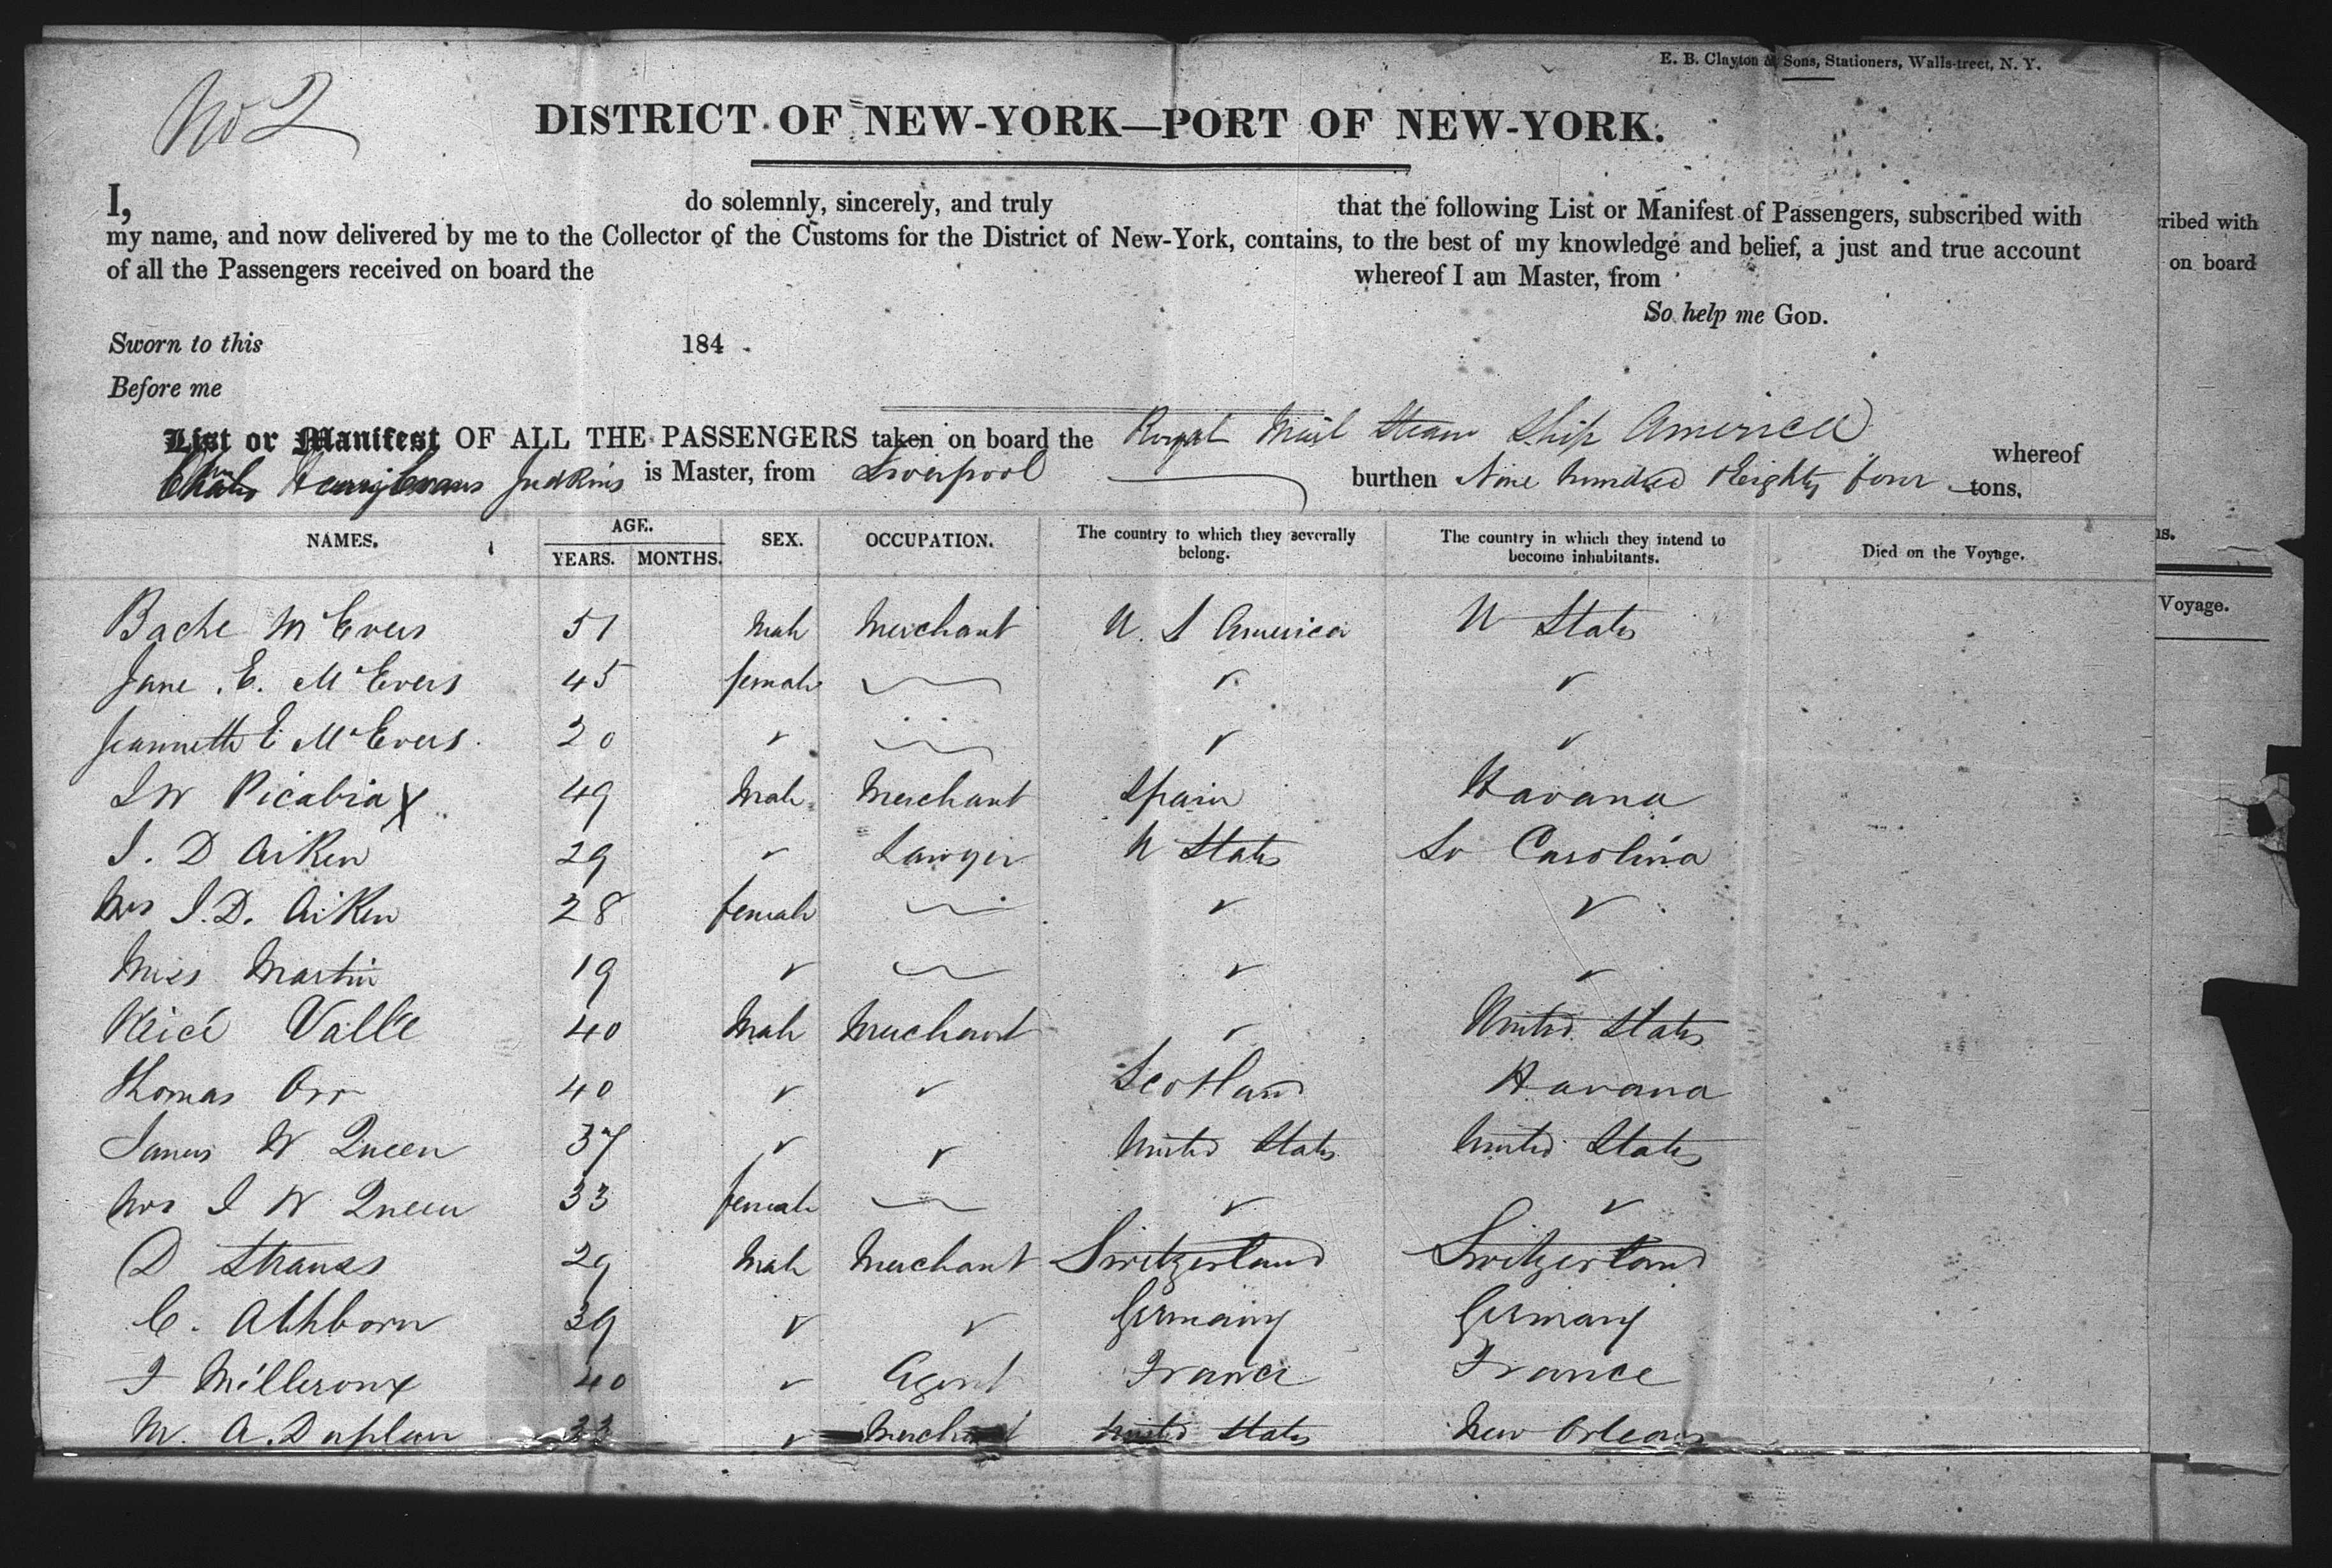 E. B. Clayton & Sons, Stationers, Walls-treet, N. Y.
No 2
DISTRICT OF NEW-YORK—PORT OF NEW-YORK.
I, do solemnly, sincerely, and truly that the following List or Manifest of Passengers, subscribed with
my name, and now delivered by me to the Collector of the Customs for the District of New-York, contains, to the best of my knowledge and belief, a just and true account
of all the Passengers received on board the whereof I am Master, from
So help me GOD.
Sworn to this 184
Before me
List or Manifest OF ALL THE PASSENGERS taken on board the Royal Mail Steam Ship America whereof
Judkins is Master, from Liverpool burthen Nine hundred Eighty four tons.
NAMES. AGE. YEARS. MONTHS. SEX. OCCUPATION. The country to which they severally belong. The country in which they intend to become inhabitants. Died on the Voyage.
Bache McEvers 51 Male Merchant U. S America U States
Jane E. McEvers 45 female ✓ ✓
Jeannette E McEvers 20 ✓ ✓ ✓
J W Picabia X 49 Male Merchant Spain Havana
J. D Aiken 29 ✓ Lawyer U States So Carolina
Mrs J. D. Aiken 28 female ✓ ✓
Miss Martin 19 ✓ ✓ ✓
Valle 40 Male Merchant ✓ United States
Thomas Orr 40 ✓ ✓ Scotland Havana
James W Queen 37 ✓ ✓ United States United States
Mrs J W Queen 33 female ✓ ✓
D Strauss 29 Male Merchant Switzerland Switzerland
C. Athborn 39 ✓ ✓ Germany Germany
F Milleroux 40 ✓ Agent France France
M. A. Duplan 33 ✓ Merchant United States New Orleans
ribed with
on board
ns.
Voyage.